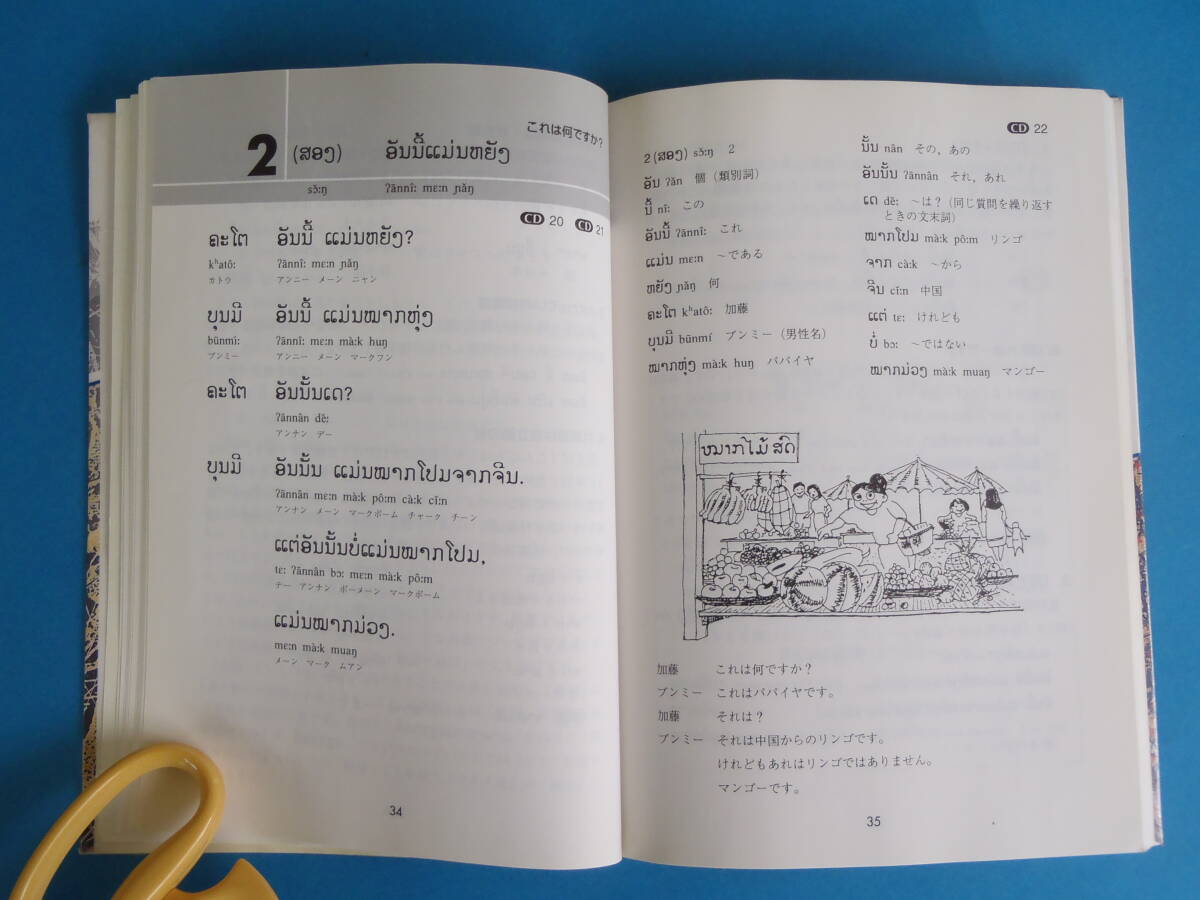 これは何ですか?
2 (ສອງ) ອັນນີ້ແມ່ນຫຍັງ
sɔ̌ːŋ ʔānnîː mɛːn ɲǎŋ
CD 20 CD 21
ຄະໂຕ ອັນນີ້ ແມ່ນຫຍັງ?
kʰatôː ʔānnîː mɛːn ɲǎŋ
カトウ アンニー メーン ニャン
ບຸນມີ ອັນນີ້ ແມ່ນໝາກຫຸ່ງ
būnmíː ʔānnîː mɛːn màːk huŋ
ブンミー アンニー メーン マークフン
ຄະໂຕ ອັນນັ້ນເດ?
ʔānnân děː
アンナン デー
ບຸນມີ ອັນນັ້ນ ແມ່ນໝາກໂປມຈາກຈີນ.
ʔānnân mɛːn màːk pôːm càːk cīːn
アンナン メーン マークポーム チャーク チーン
ແຕ່ອັນນັ້ນບໍ່ແມ່ນໝາກໂປມ,
tɛː ʔānnân bɔː mɛːn màːk pôːm
テー アンナン ボーメーン マークポーム
ແມ່ນໝາກມ່ວງ.
mɛːn màːk muaŋ
メーン マーク ムアン
34
CD 22
2 (ສອງ) sɔ̌ːŋ 2
ອັນ ʔān 個(類別詞)
ນີ້ nîː この
ອັນນີ້ ʔānnîː これ
ແມ່ນ mɛːn ~である
ຫຍັງ ɲǎŋ 何
ຄະໂຕ kʰatôː 加藤
ບຸນມີ būnmí ブンミー(男性名)
ໝາກຫຸ່ງ màːk huŋ パパイヤ
ນັ້ນ nân その,あの
ອັນນັ້ນ ʔānnân それ,あれ
ເດ děː ~は?(同じ質問を繰り返す
ときの文末詞)
ໝາກໂປມ màːk pôːm リンゴ
ຈາກ càːk ~から
ຈີນ cīːn 中国
ແຕ່ tɛː けれども
ບໍ່ bɔː ~ではない
ໝາກມ່ວງ màːk muaŋ マンゴー
ໝາກໄມ້ ສົດ
加藤 これは何ですか?
ブンミー これはパパイヤです。
加藤 それは?
ブンミー それは中国からのリンゴです。
けれどもあれはリンゴではありません。
マンゴーです。
35